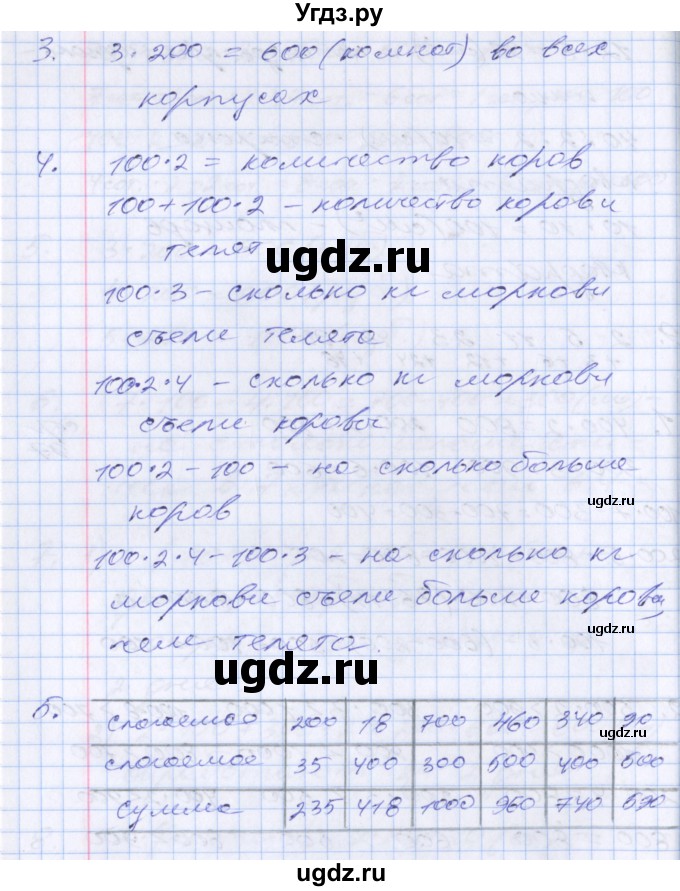 Угдз.ру
3. 3·200 = 600 (комнат) во всех
корпусах
4. 100·2 = количество коров
100+100·2 – количество коров и
телят
ugdz.ru
100·3 – сколько кг моркови
съели телята
100·2·4 – сколько кг моркови
съели коровы
100·2 – 100 – на сколько больше
коров
ugdz.ru
100·2·4 – 100·3 – на сколько кг
моркови съели больше коровы,
ugdz.ru
чем телята.
ugdz.ru
5. слагаемое 200 18 700 460 340 90
слагаемое 35 400 300 500 400 500
ugdz.ru
сумма 235 418 1000 960 740 590
ugdz.ru